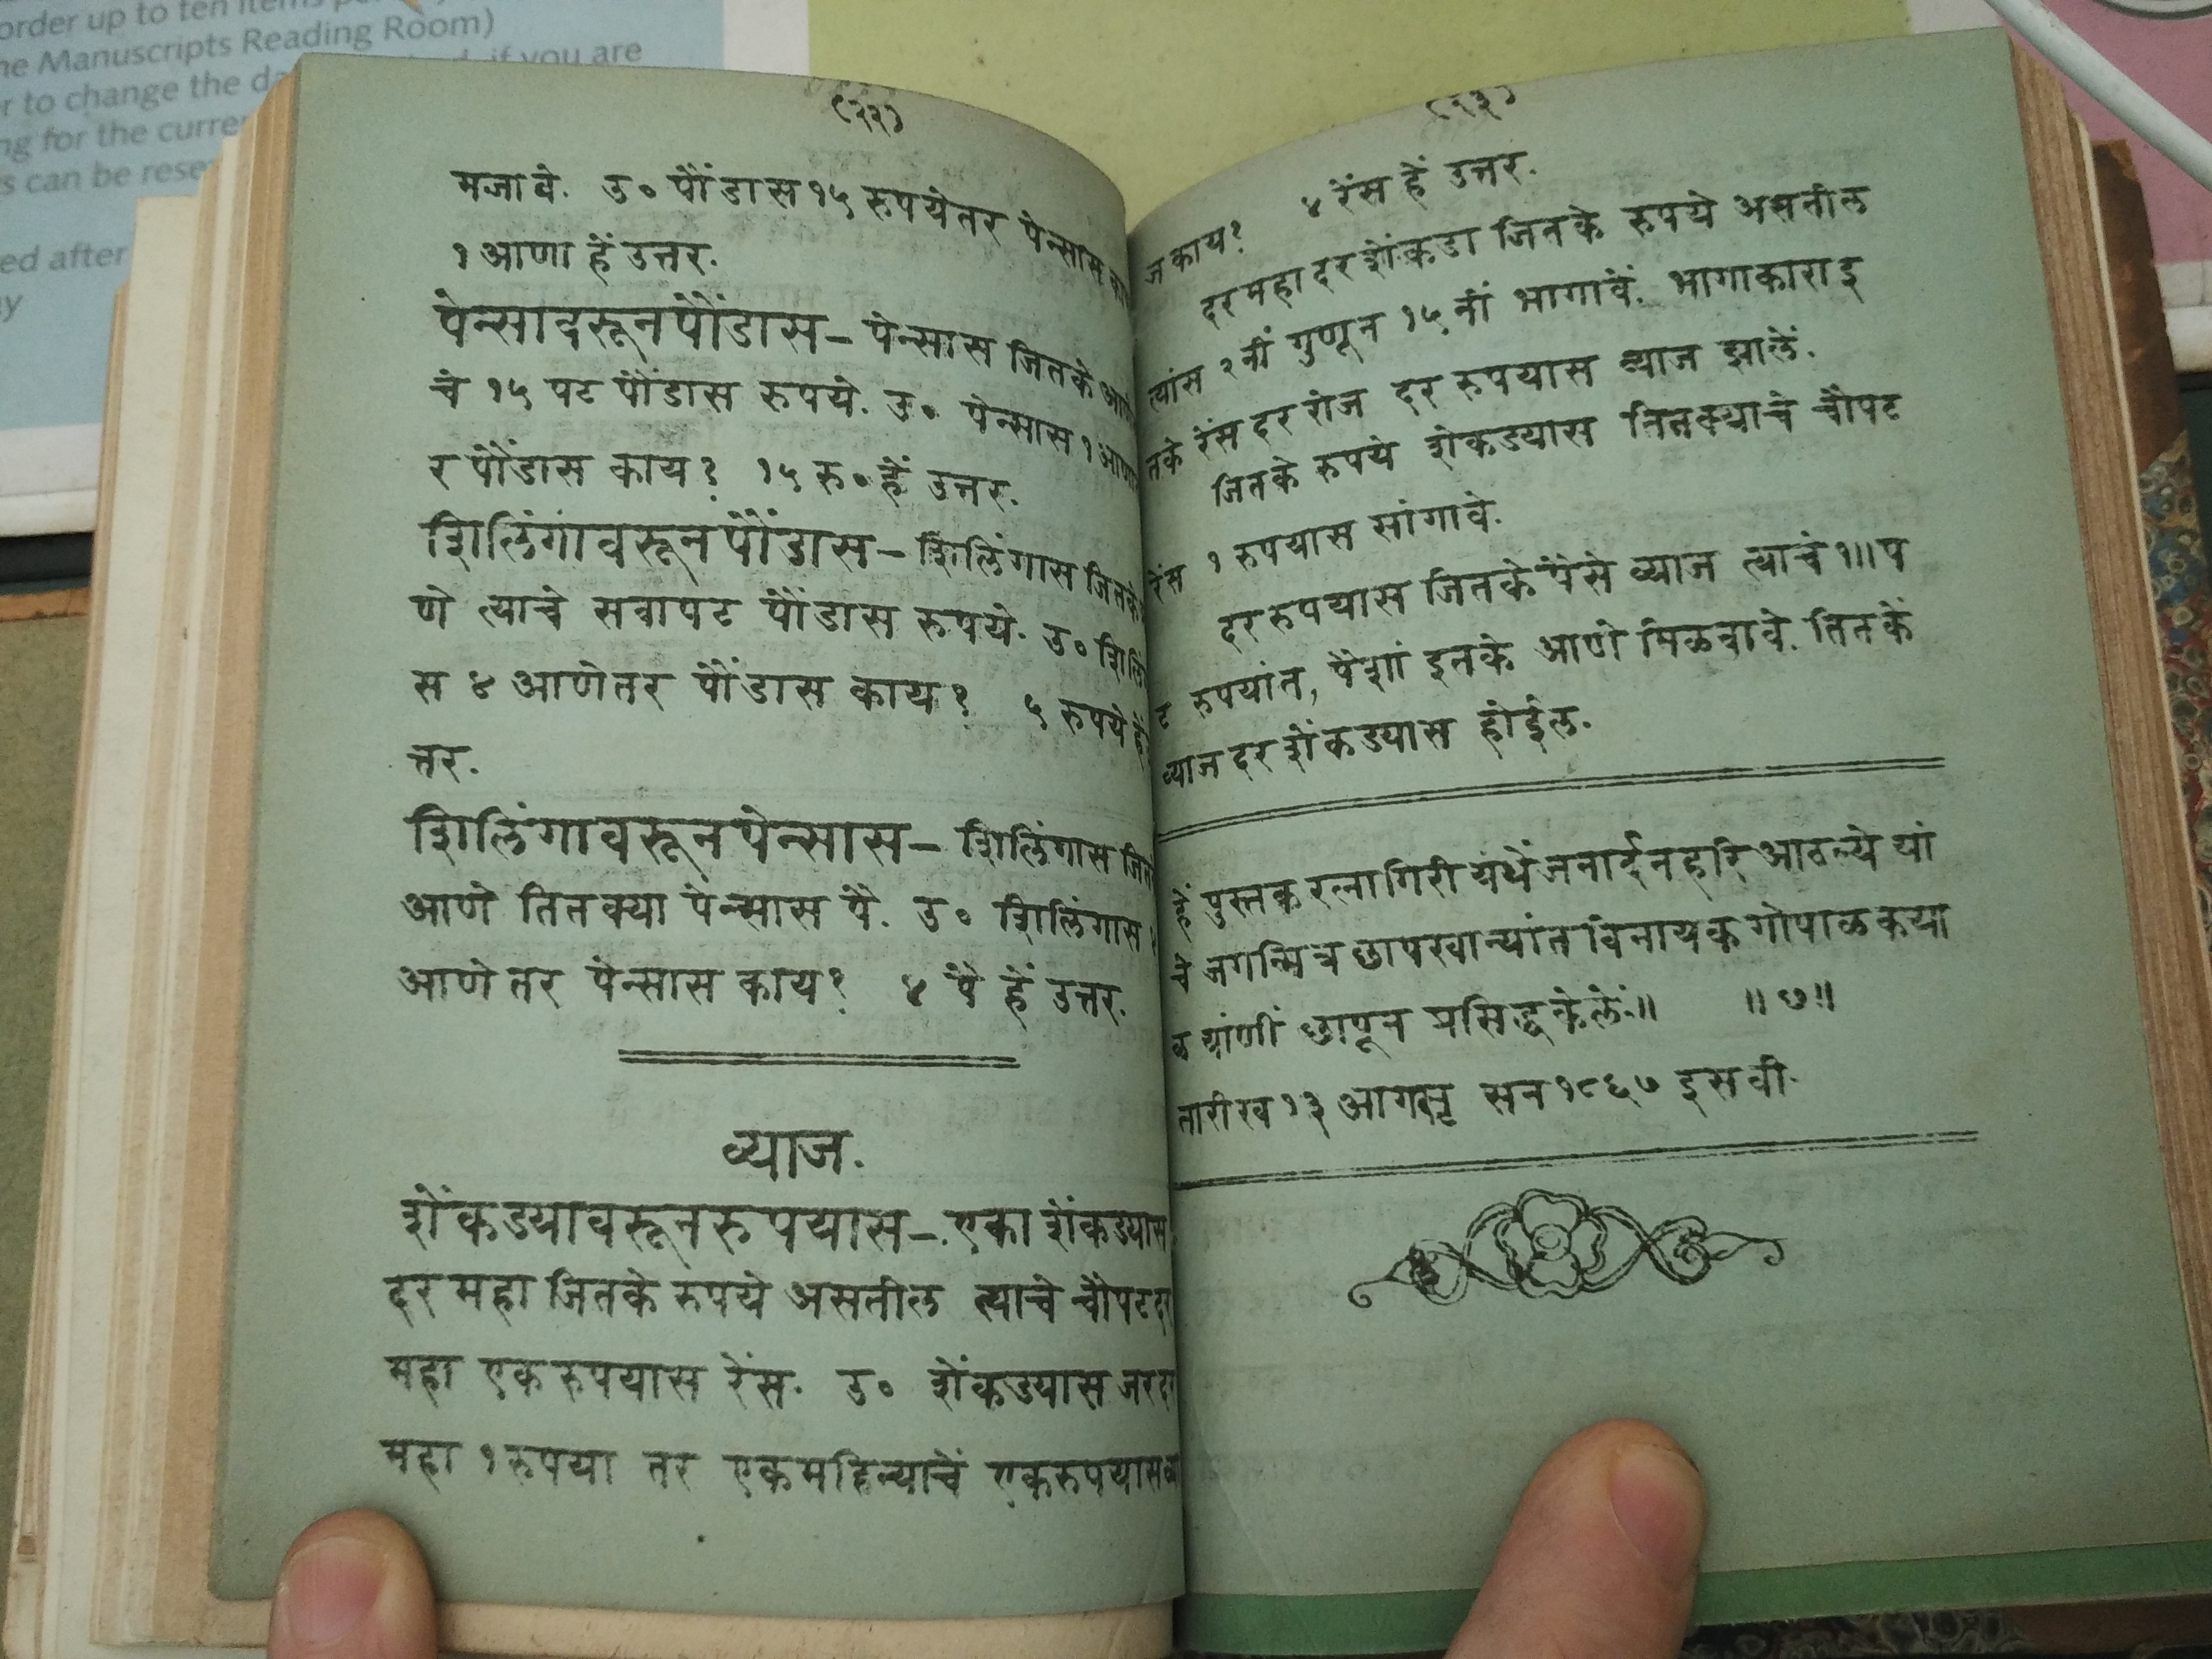 order up to ten items
Manuscripts Reading Room)
if you are
to change the
for the
can be
ed after
मजावे. उ० पौंडास १५ रुपये तर पेन्सास
१ आणा हें उत्तर.
पेन्सावरून पौंडास — पेन्सास जितके
चे १५ पट पौंडास रुपये. उ० पेन्सास १
र पौंडास काय? १५ रु० हें उत्तर.
शिलिंगावरून पौंडास — शिलिंगास जितके
णे त्याचे सवापट पौंडास रुपये. उ०
स ४ आणे तर पौंडास काय? ५ रुपये हें
त्तर.
शिलिंगावरून पेन्सास — शिलिंगास
आणे तितक्या पेन्सास पै. उ० शिलिंगास
आणे तर पेन्सास काय? ४ पै हें उत्तर.
व्याज.
शेंकड्यावरून रुपयास — एका शेंकड्यास
दर महा जितके रुपये असतील त्याचे चौपट
महा एक रुपयास रेंस. उ० शेंकड्यास जर
महा १ रुपया तर एक महिन्याचें एक रुपयास
ज काय? ४ रेंस हें उत्तर.
दर महा दर शेंकडा जितके रुपये असतील
त्यांस २ नीं गुणून १५ नीं भागावें. भागाकारा इ
तके रेंस दर रोज दर रुपयास व्याज झालें.
जितके रुपये शेकड्यास तितक्याचे चौपट
रेंस १ रुपयास सांगावे.
दर रुपयास जितके पैसे व्याज त्याचे १॥ प
ट रुपयांत, पैशां इतके आणे मिळवावे. तितकें
व्याज दर शेंकड्यास होईल.
हें पुस्तक रत्नागिरी येथें जनार्दन हरि आठल्ये यां
चे जगन्मित्र छापखान्यांत विनायक गोपाळ कया
ळ यांणीं छापून प्रसिद्ध केलें॥ ॥ ७ ॥
तारीख १३ आगस्ट सन १८६७ इसवी.